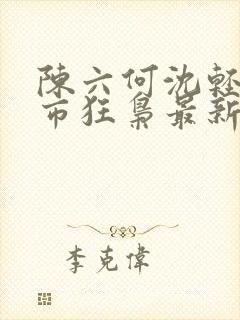 陳六何沈輕
市狂梟最新
李克偉